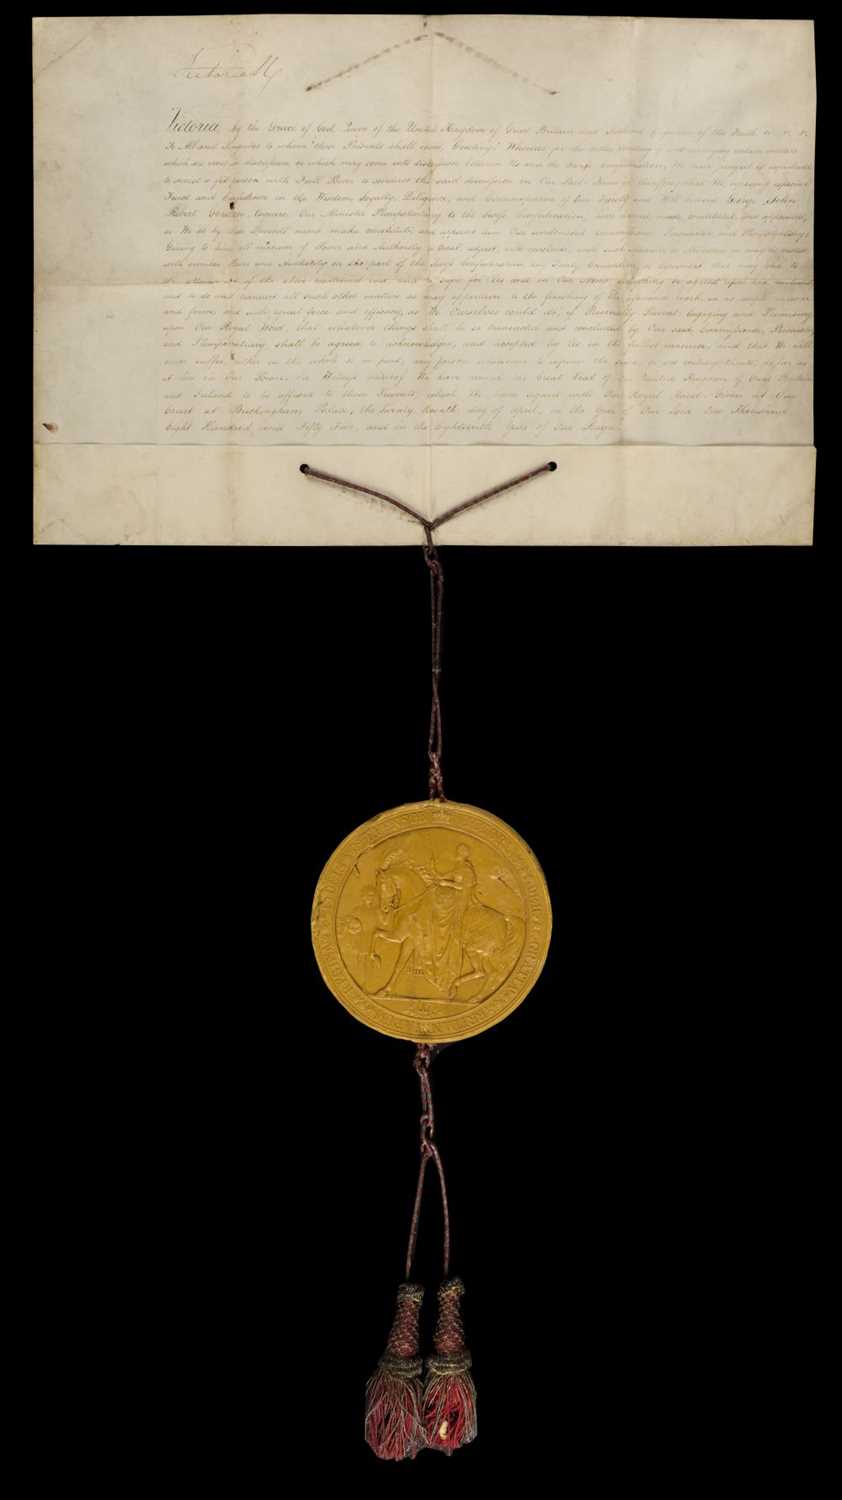 Victoria R
Victoria, by the Grace of God, Queen of the United Kingdom of Great Britain and Ireland, Defender of the Faith &c. &c. &c.
To All and Singular to whom these Presents shall come, Greeting! Whereas for the better treating of and arranging certain matters
which are now in discussion, or which may come into discussion between Us and the Swiss Confederation, We have judged it expedient
to invest a fit person with Full Power to conduct the said discussion on Our Part: Know Ye therefore that We reposing especial
Trust and Confidence in the Wisdom, Loyalty, Diligence, and Circumspection of Our Trusty and Well beloved George John
Robert Gordon, Esquire, Our Minister Plenipotentiary to the Swiss Confederation, have named, made, constituted, and appointed,
as We do by these Presents name, make, constitute, and appoint him Our undoubted Commissioner, Procurator, and Plenipotentiary;
Giving to him all manner of Power and Authority to treat, adjust, and conclude, with such Minister or Ministers as may be vested
with similar Power and Authority on the part of the Swiss Confederation, any Treaty, Convention, or Agreement that may tend to
the attainment of the above mentioned end, and to sign for Us and in Our Name everything so agreed upon and concluded,
and to do and transact all such other matters as may appertain to the finishing of the aforesaid work, in as ample manner
and form, and with equal force and efficacy, as We Ourselves could do, if Personally Present: Engaging and Promising
upon Our Royal Word, that whatever things shall be so transacted and concluded by Our said Commissioner, Procurator,
and Plenipotentiary, shall be agreed to, acknowledged, and accepted by Us in the fullest manner, and that We will
never suffer, either in the whole or in part, any person whatsoever to infringe the same, or act contrary thereto, as far as
it lies in Our Power. In Witness whereof We have caused the Great Seal of Our United Kingdom of Great Britain
and Ireland to be affixed to these Presents, which We have signed with Our Royal Hand. Given at Our
Court at Buckingham Palace, the Twenty day of April, in the Year of Our Lord One Thousand
Eight Hundred and Fifty Five, and in the Eighteenth Year of Our Reign.